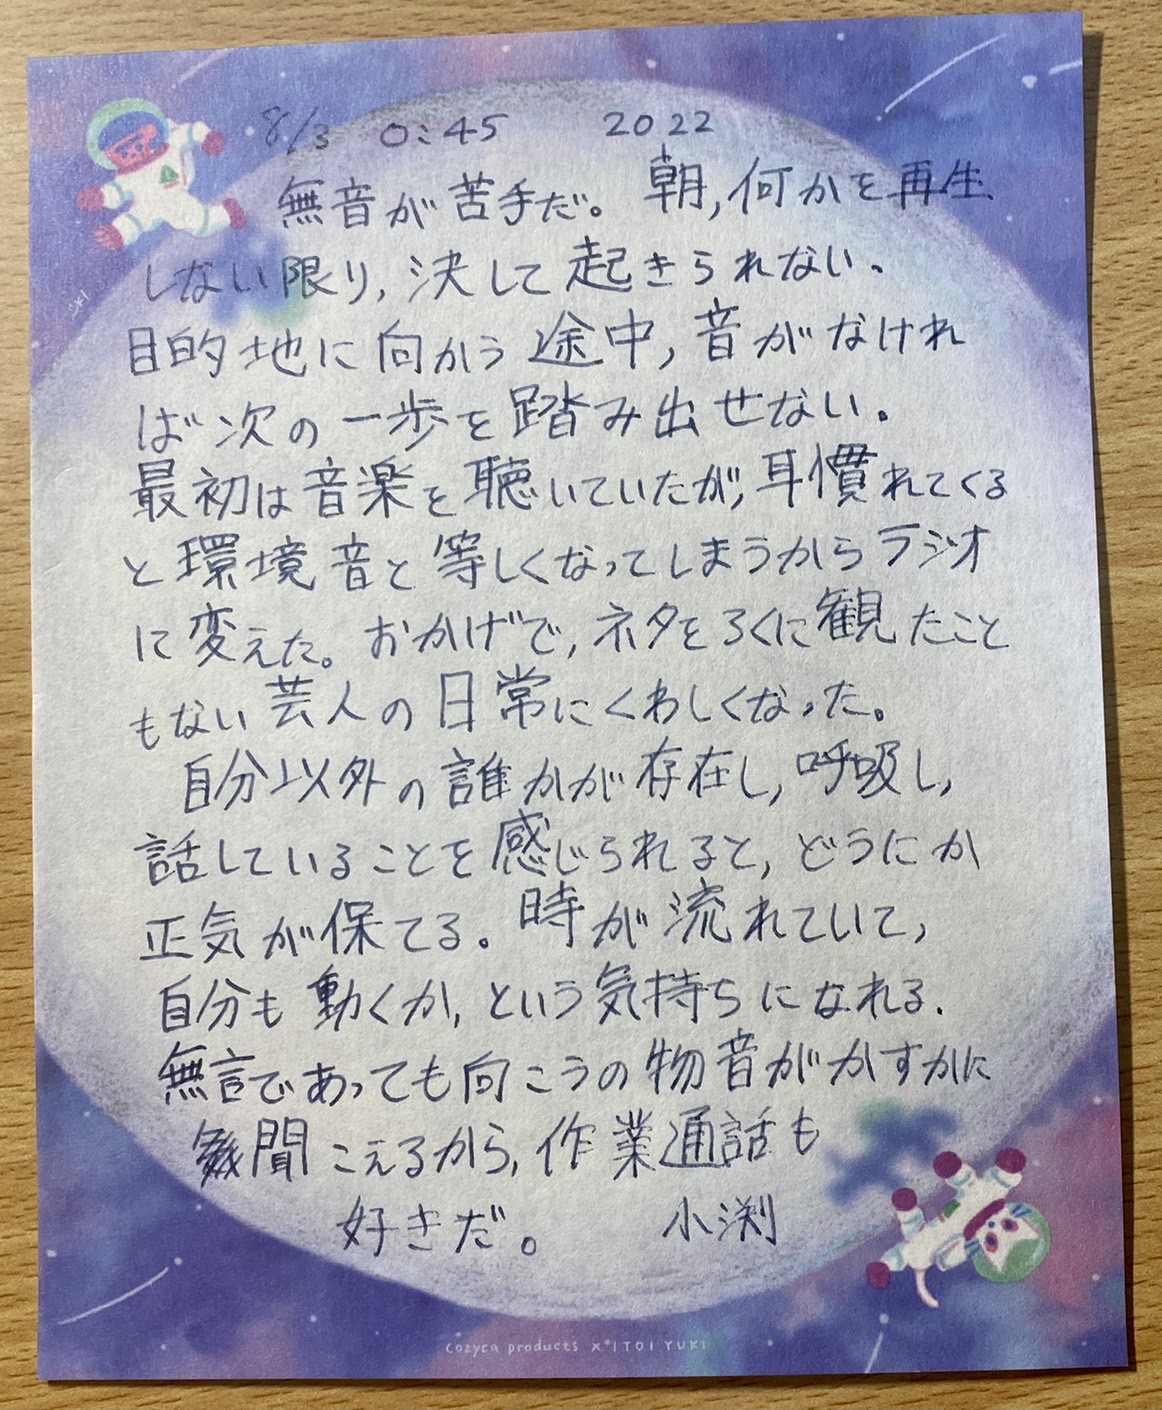 8/3 0:45 2022
無音が苦手だ。朝,何かを再生
しない限り,決して起きられない。
目的地に向かう途中,音がなけれ
ば次の一歩を踏み出せない。
最初は音楽を聴いていたが,耳慣れてくる
と環境音と等しくなってしまうからラジオ
に変えた。おかげで,ネタをろくに観たこと
もない芸人の日常にくわしくなった。
自分以外の誰かが存在し,呼吸し,
話していることを感じられると,どうにか
正気が保てる。時が流れていて,
自分も動くか,という気持ちになれる.
無言であっても向こうの物音がかすかに
聞こえるから,作業通話も
好きだ。 小渕
cozyca products × ITOI YUKI